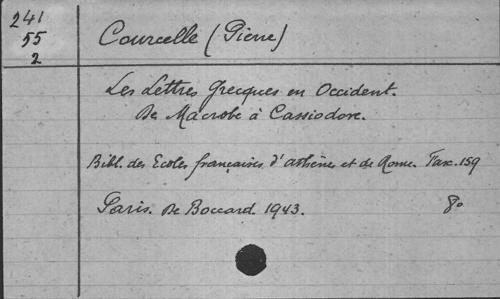 241
55
2
Courcelle (Pierre)
Les Lettres Grecques en Occident.
De Macrobe à Cassiodore.
Bibl. des Ecoles françaises d'Athènes et de Rome. Fasc. 159
Paris. De Boccard. 1943. 8º